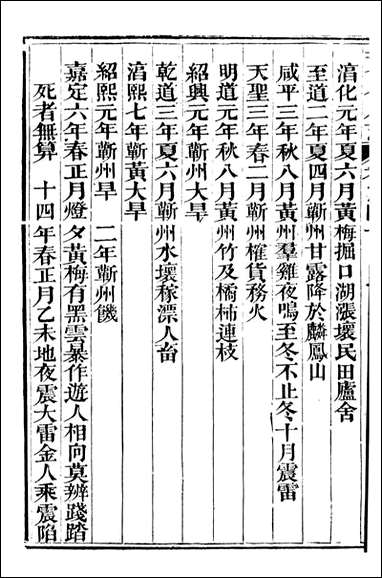 淯化元年夏六月黃梅掘口湖漲壞民田廬舍
至道二年夏四月蘄州甘露降於麟鳳山
咸平三年秋八月黃州羣雞夜鳴至冬不止冬十月震雷
天聖三年春二月蘄州榷貨務火
明道元年秋八月黃州竹及橘柿連枝
紹興元年蘄州大旱
乾道三年夏六月蘄州水壞稼漂人畜
淯熙七年蘄黃大旱
紹熙元年蘄州旱　二年蘄州饑
嘉定六年春正月燈夕黃梅有黑雲暴作遊人相向莫辨踐踏
死者無算　十四年春正月乙未地夜震大雷金人乘震陷